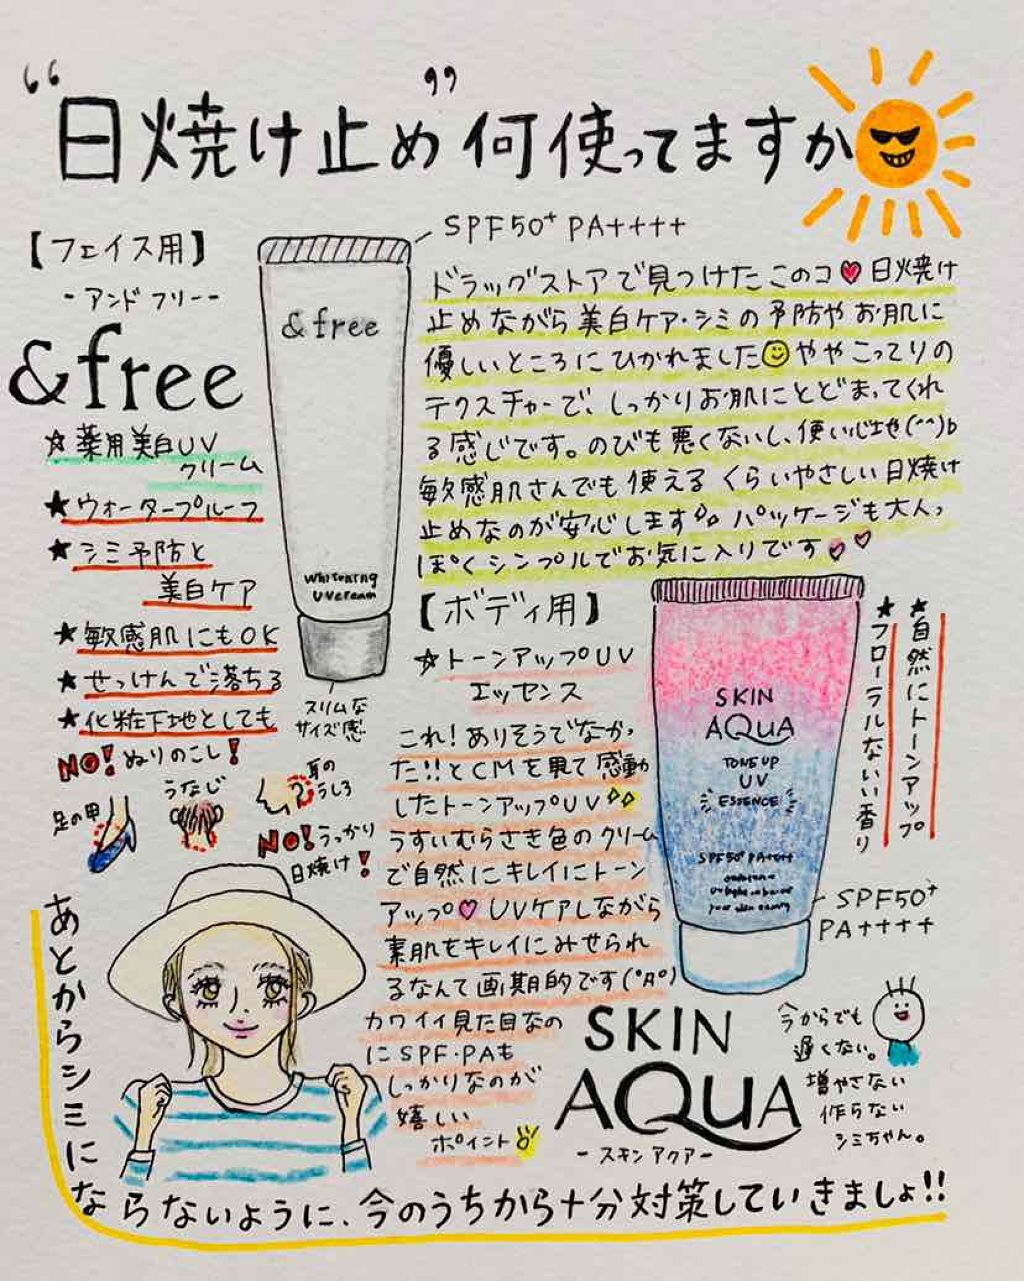 “日焼け止め”何使ってますか
【フェイス用】
-アンドフリー-
&free
☆薬用美白UV
クリーム
★ウォータープルーフ
★シミ予防と
美白ケア
★敏感肌にもOK
★せっけんで落ちる
★化粧下地としても
&free
Whitening
UV cream
スリムな
サイズ感
SPF50+ PA++++
ドラッグストアで見つけたこのコ♥日焼け
止めながら美白ケア・シミの予防やお肌に
優しいところにひかれました☺ややこってりの
テクスチャーで、しっかりお肌にとどまってくれ
る感じです。のびも悪くないし、使い心地(^^)b
敏感肌さんでも使えるくらいやさしい日焼け
止めなのが安心します。パッケージも大人っ
ぽくシンプルでお気に入りです♥♥
NO!ぬりのこし!
足の甲
うなじ
耳の
うしろ
NO!うっかり
日焼け!
【ボディ用】
☆トーンアップUV
エッセンス
これ!ありそうでなかっ
た!!とCMを見て感動
したトーンアップUV
うすいむらさき色のクリーム
で自然にキレイにトーン
アップ♥UVケアしながら
素肌をキレイにみせられ
るなんて画期的です(°Д°)
カワイイ見た目なの
にSPF・PAも
しっかりなのが
嬉しい
ポイント
SKIN
AQUA
TONE UP
UV
ESSENCE
SPF50+ PA++++
★自然にトーンアップ
★フローラルないい香り
SPF50+
PA++++
SKIN
AQUA
-スキンアクア-
今からでも
遅くない。
増やさない
作らない
シミちゃん。
あとからシミに
ならないように、今のうちから十分対策していきましょ!!